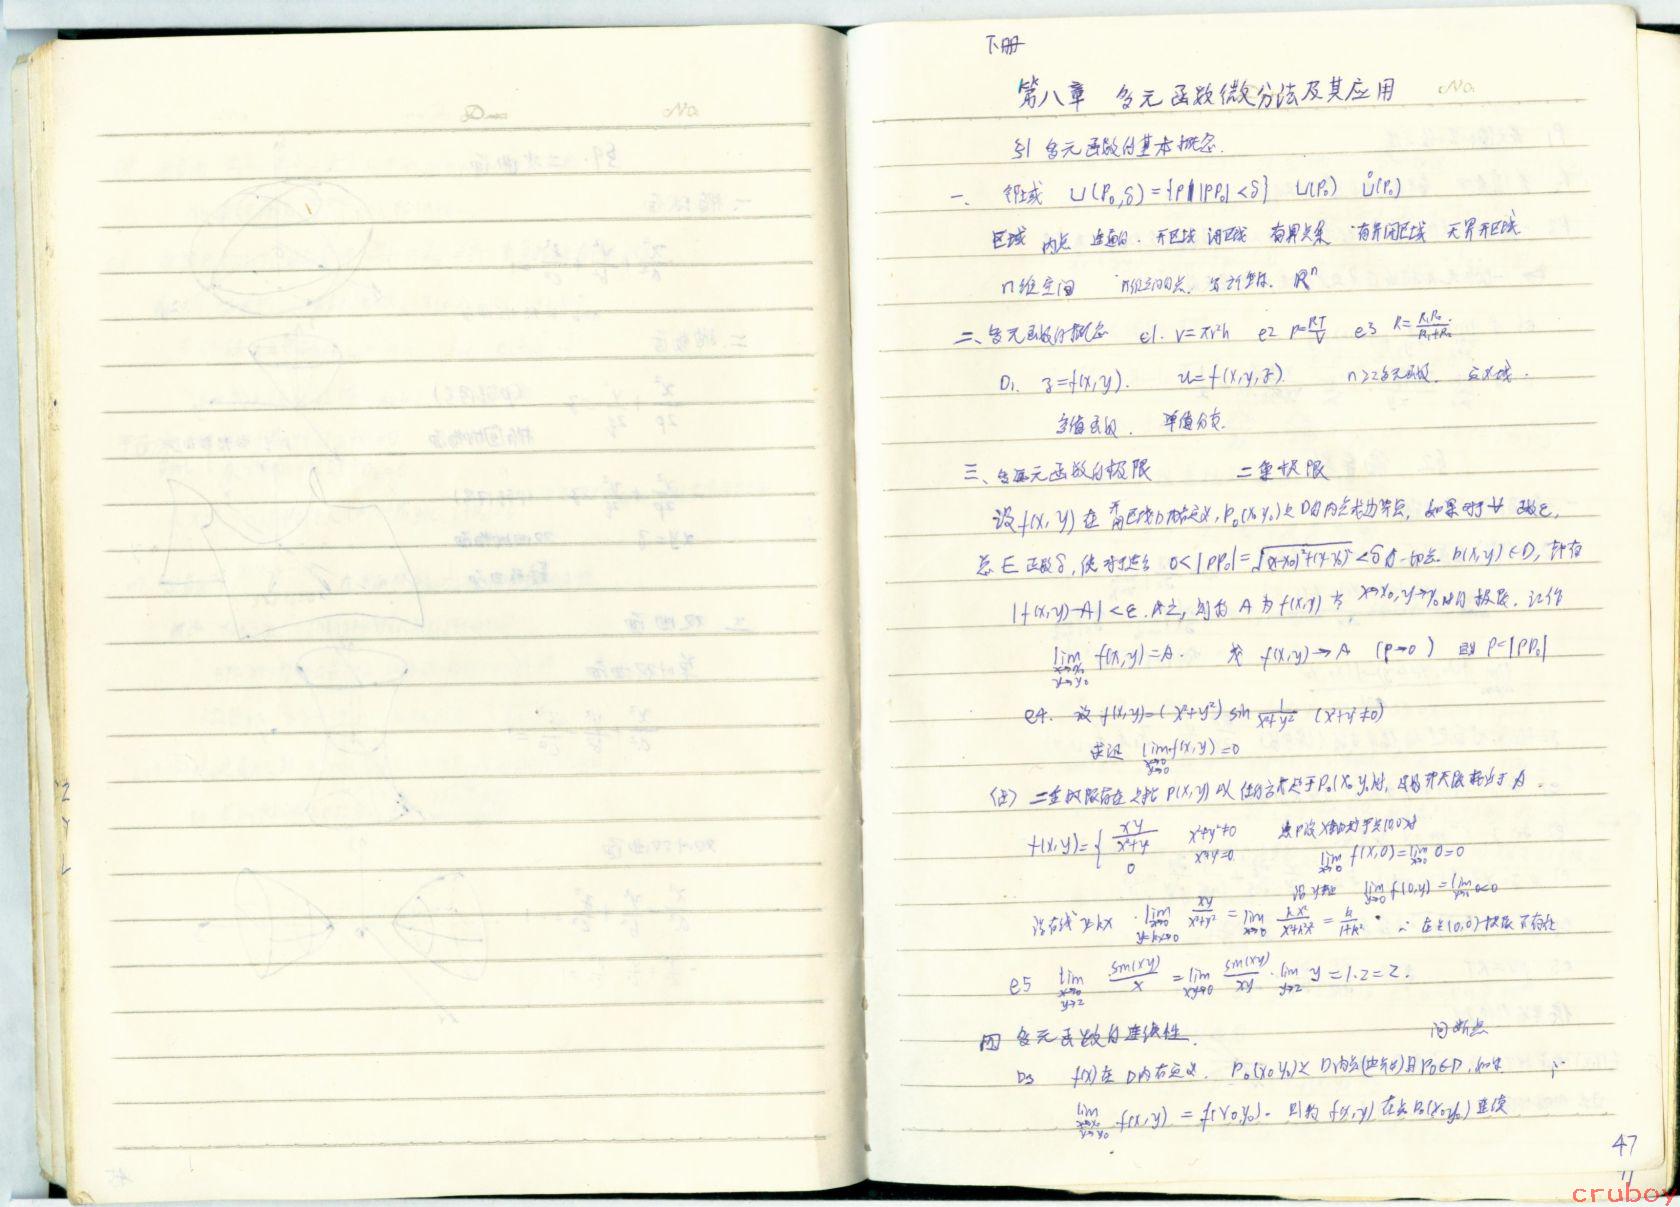 下册
第八章 多元函数微分法及其应用
§1 多元函数的基本概念.
一、 邻域 U(P₀,δ)={P||PP₀|<δ} U(P₀) Ů(P₀)
区域 内点 连通的. 开区域 闭区域 有界点集 有界闭区域 无界开区域
n维空间 n维空间的点, Rⁿ
二、多元函数的概念 e1. V=πr²h e2 P=RT/V e3 R=R₁R₂/(R₁+R₂)
D₁. z=f(x,y). u=f(x,y,z). n≥2多元函数. 定义域.
多值函数. 单值分支.
三、多元函数的极限 二重极限
设f(x,y)在开闭区域D内有定义, P₀(x₀y₀)是D的内点或边界点, 如果对于∀ 正数ε,
总∃正数δ, 使对于适合 0<|PP₀|=√(x-x₀)²+(y-y₀)²<δ的一切点 P(x,y)∈D, 都有
|f(x,y)-A|<ε. 成立, 则称 A为f(x,y)当 x→x₀,y→y₀时的极限. 记作
lim x→x₀ y→y₀ f(x,y)=A. 或 f(x,y)→A (ρ→0) ρ=|PP₀|
e4. 设 f(x,y)=(x²+y²) sin 1/(x²+y²) (x²+y²≠0)
求证 lim x→0 y→0 f(x,y)=0
(注) 二重极限存在是指P(x,y)以任何方式趋于P₀(x₀y₀)时, 函数都无限接近于A.
f(x,y)={ xy/(x²+y²) x²+y²≠0 点P沿x轴趋于点(0,0)时
0 x²+y²=0 lim x→0 f(x,0)=lim x→0 0=0
沿y轴 lim y→0 f(0,y)=lim y→0 0=0
沿直线 y=kx lim x→0 y=kx→0 xy/(x²+y²) = lim x→0 kx²/(x²+k²x²) = k/(1+k²) ∴ 在点(0,0)极限不存在
e5 lim x→0 y→2 sin(xy)/x = lim xy→0 sin(xy)/xy · lim y→2 y=1·2=2.
四 多元函数的连续性. 间断点
D3 f(x)在D内有定义. P₀(x₀y₀)是D内点(边界点)且P₀∈D, 如果
lim x→x₀ y→y₀ f(x,y) = f(x₀,y₀). 则称 f(x,y) 在点P₀(x₀y₀)连续
47
cruboy